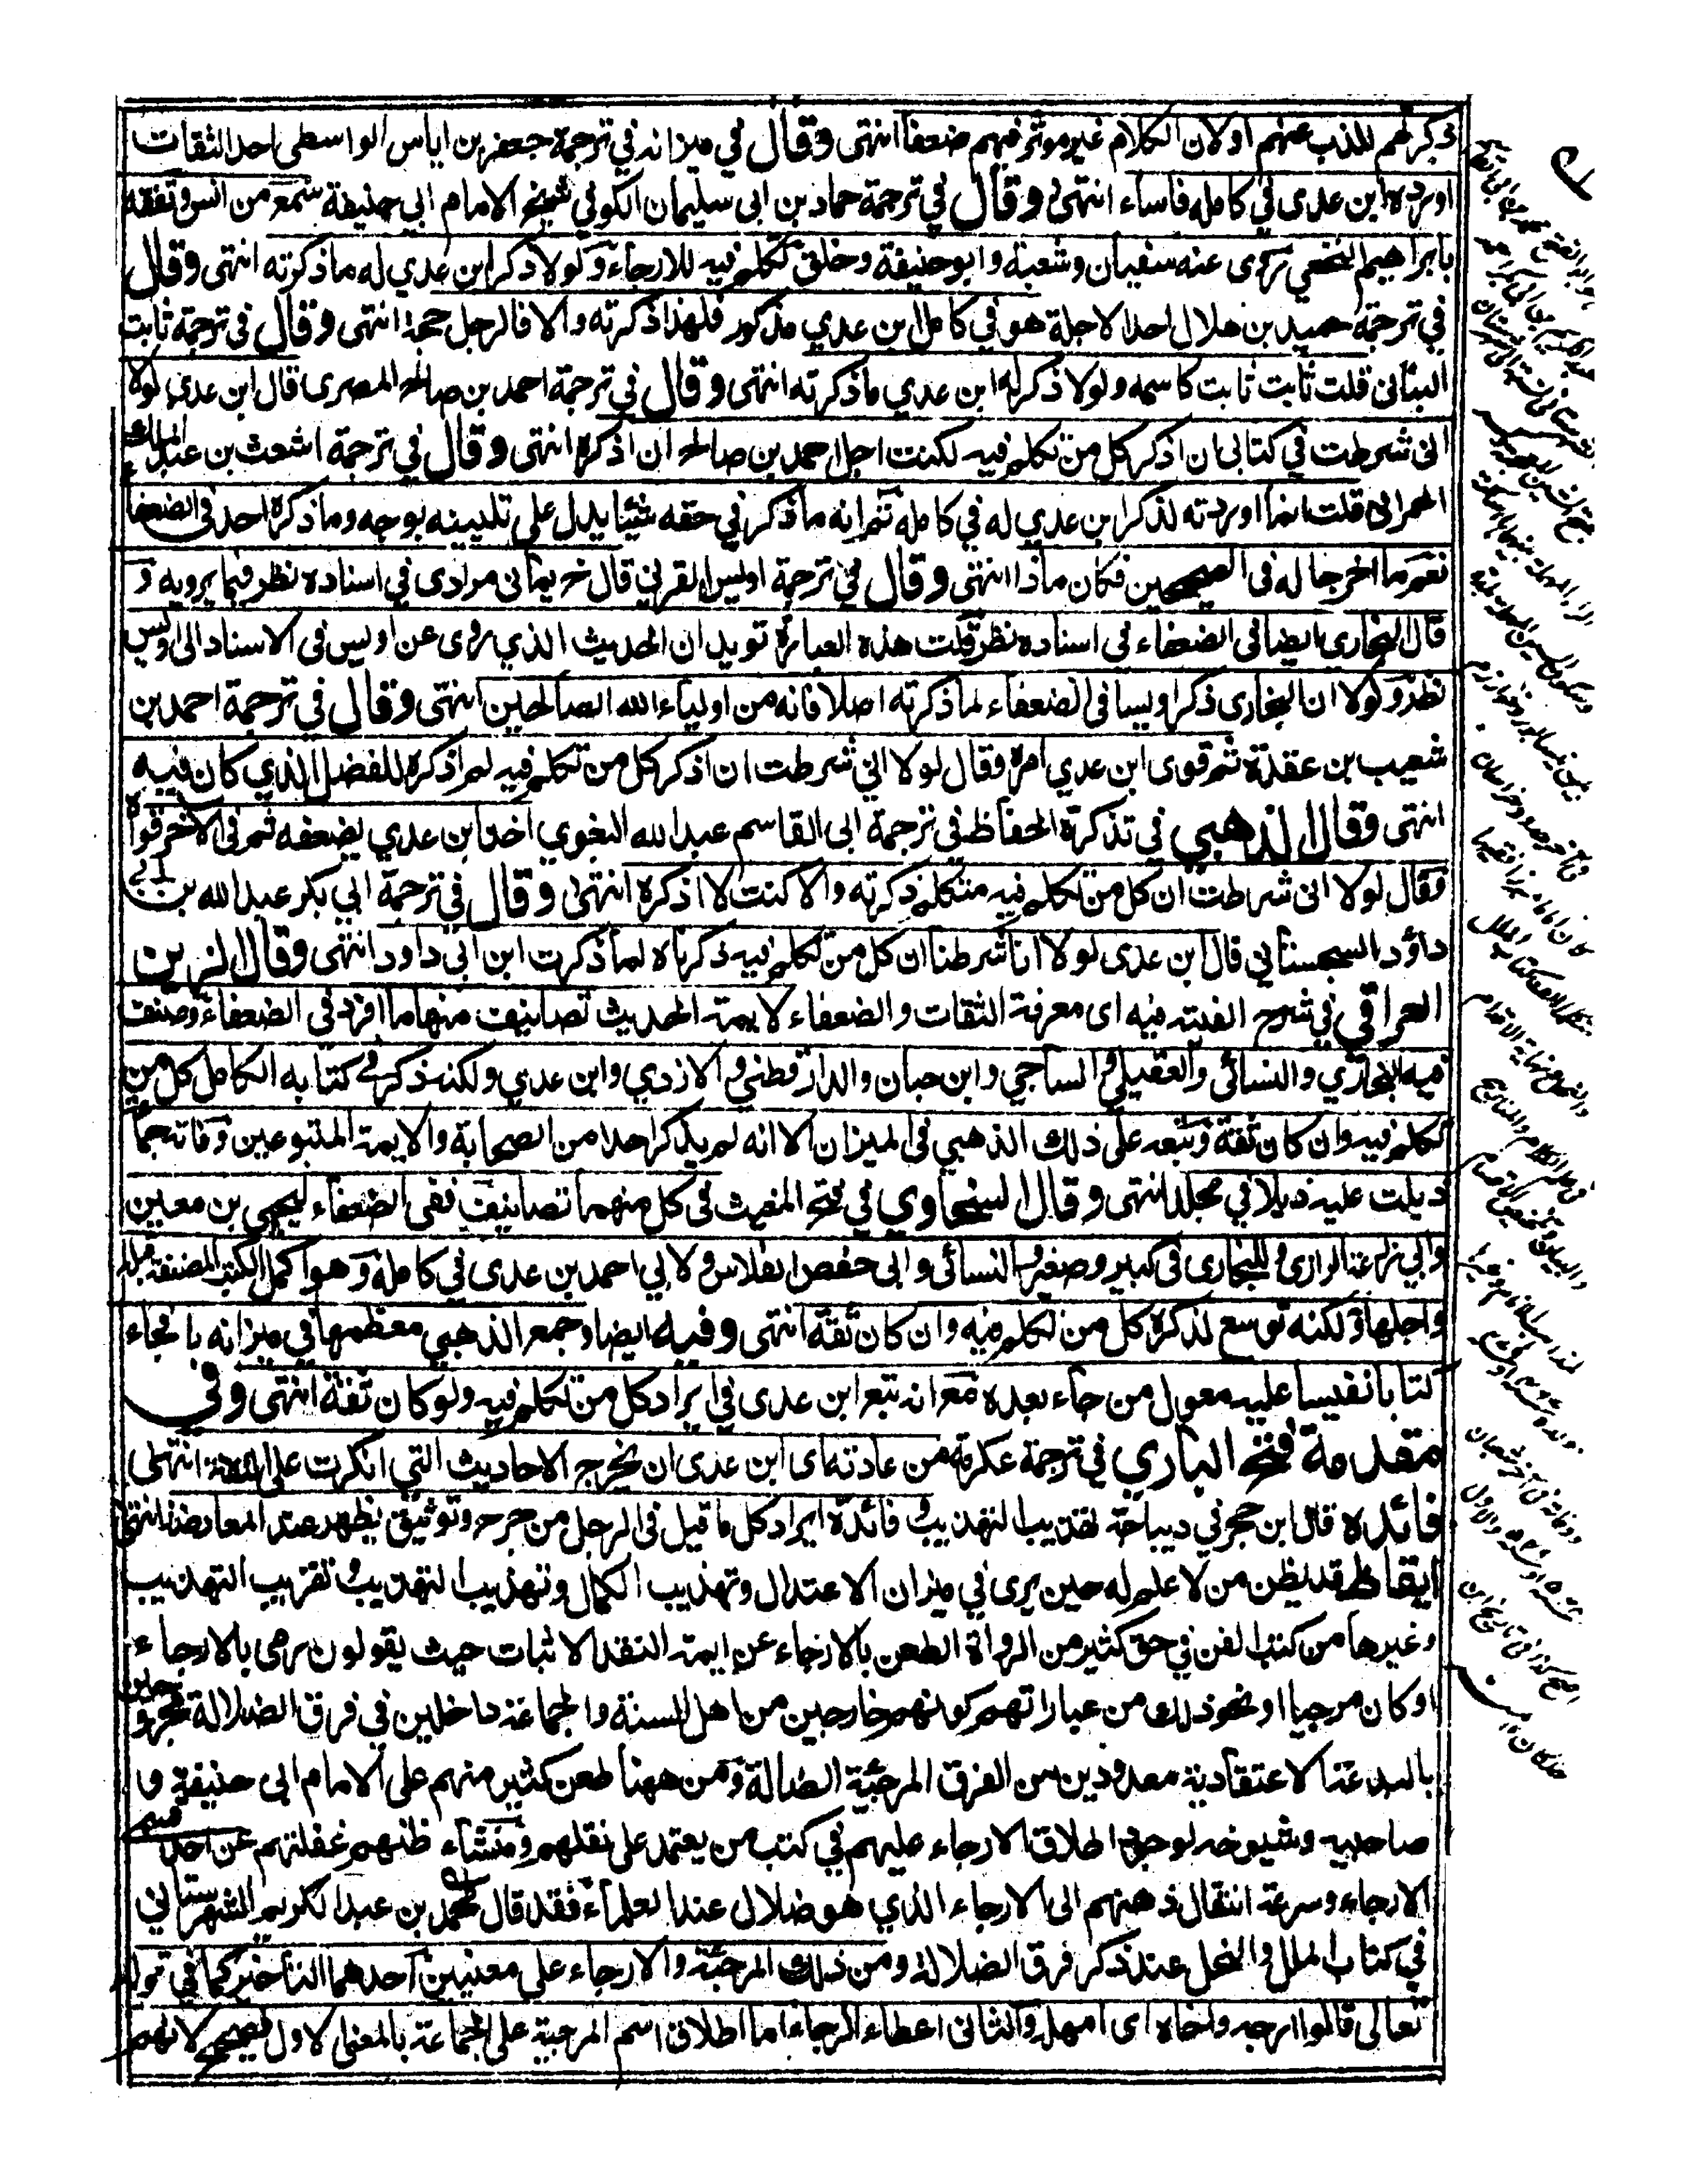 ذكرتهم للذب عنهم او لان الكلام غير موثر فيهم ضعفا انتهى وقال في ميزانه في ترجمة جعفر بن اياس الواسطي احد الثقات
اورده ابن عدى في كامله فاساء انتهى وقال في ترجمة حماد بن ابى سليمان الكوفي شيخ الامام ابي حنيفة سمع من انس وتفقه
بابراهيم النخعي روى عنه سفيان وشعبة وابو حنيفة وخلق تكلم فيه للارجاء ولولا ذكر ابن عدي له ما ذكرته انتهى وقال
في ترجمة حميد بن هلال احد الاجلة هو في كامل ابن عدي مذكور فلهذا ذكرته والا فالرجل حجة انتهى وقال في ترجمة ثابت
البنانى قلت ثابت ثابت كاسمه ولولا ذكر له ابن عدي ما ذكرته انتهى وقال في ترجمة احمد بن صالح المصرى قال ابن عدى لولا
انى شرطت في كتابى ان اذكر كل من تكلم فيه لكنت اجل احمد بن صالح ان اذكره انتهى وقال في ترجمة اشعث بن عبد الملك
الحمرانى قلت انما اوردته لذكر ابن عدي له في كامله ثم انه ما ذكر في حقه شيئا يدل على تليينه بوجه وما ذكره احد في الضعفا
نعم ما اخرجا له فى الصحيحين فكان ماذا انتهى وقال في ترجمة اويس القرني قال خ يمانى مرادى في اسناده نظر فيما يرويه و
قال البخاري ايضا فى الضعفاء في اسناده نظر قلت هذه العبارة تويد ان الحديث الذي روى عن اويس فى الاسناد الى اويس
نظر ولولا ان البخارى ذكر اويسا فى الضعفاء لما ذكرته اصلا فانه من اولياء الله الصالحين انتهى وقال في ترجمة احمد بن
شعيب بن عقدة ثم قوى ابن عدي امره وقال لولا اني شرطت ان اذكر كل من تكلم فيه لم اذكره للفضل الذي كان فيه
انتهى وقال الذهبي في تذكرة الحفاظ في ترجمة ابى القاسم عبد الله البغوي اخذ ابن عدي يضعفه ثم فى الاخر قواه
وقال لولا انى شرطت ان كل من تكلم فيه متكلم ذكرته والا كنت لا اذكره انتهى وقال في ترجمة ابي بكر عبد الله بن ابي
داؤد السجستاني قال ابن عدى لولا انا شرطنا ان كل من تكلم فيه ذكرناه لما ذكرت ابن ابي داود انتهى وقال الزين
العراقي في شرح الفيته فيه اى معرفة الثقات والضعفاء لايمة الحديث تصانيف منها ما افرد فى الضعفاء وصنف
فيه البخاري والنسائى والعقيلي والساجي وابن حبان والدارقطني والازدي وابن عدي ولكنه ذكر في كتابه الكامل كل من
تكلم فيه وان كان ثقة وتبعه على ذلك الذهبي فى الميزان الا انه لم يذكر احدا من الصحابة والايمة المتبوعين وفاته جماعة
ذيلت عليه ذيلا في مجلد انتهى وقال السخاوي في فتح المغيث فى كل منهما تصانيف ففى الضعفاء ليحيى بن معين
وابي زرعة الرازى وللبخارى فى كبير وصغير والنسائى وابى حفص الفلاس ولابي احمد بن عدى في كامله وهو اكمل الكتب المصنفة قبله
واجلها ولكنه توسع لذكره كل من تكلم فيه وان كان ثقة انتهى وفيه ايضا وجمع الذهبي معظمها في ميزانه بالجاء
كتابا نفيسا عليه معول من جاء بعده مع انه تبع ابن عدى في ايراد كل من تكلم فيه ولو كان ثقة انتهى وفي
مقدمة فتح الباري في ترجمة عكرمة من عادته اى ابن عدى ان يخرج الاحاديث التي انكرت على الثقة انتهى
فائده قال ابن حجر في ديباجة تهذيب التهذيب فائدة ايراد كل ما قيل فى الرجل من جرح وتوثيق يظهر عند المعارضة انتهى
ايقاظ قد يظن من لا علم له حين يرى في ميزان الاعتدال وتهذيب الكمال وتهذيب التهذيب وتقريب التهذيب
وغيرها من كتب الفن في حق كثير من الرواة الطعن بالارجاء عن ايمة النقد الاثبات حيث يقولون رمى بالارجاء
او كان مرجيا او نحو ذلك من عباراتهم كونهم خارجين من اهل السنة والجماعة داخلين في فرق الضلالة مجروحين
بالبدعة الاعتقادية معدودين من الفرق المرجئة الضالة ومن ههنا طعن كثير منهم على الامام ابى حنيفة و
صاحبيه وشيوخه لوجود اطلاق الارجاء عليهم في كتب من يعتمد على نقلهم ومنشاء ظنهم غفلتهم عن احد قسمى
الارجاء وسرعة انتقال ذهنهم الى الارجاء الذي هو ضلال عند العلماء فقد قال محمد بن عبد الكريم الشهرستاني
في كتاب الملل والنحل عند ذكر فرق الضلالة ومن ذلك المرجئة والارجاء على معنيين احدهما التاخير كما في قوله
تعالى قالوا ارجه واخاه اى امهله والثانى اعطاء الرجاء اما اطلاق اسم المرجية على الجماعة بالمعنى الاول فصحيح لانهم